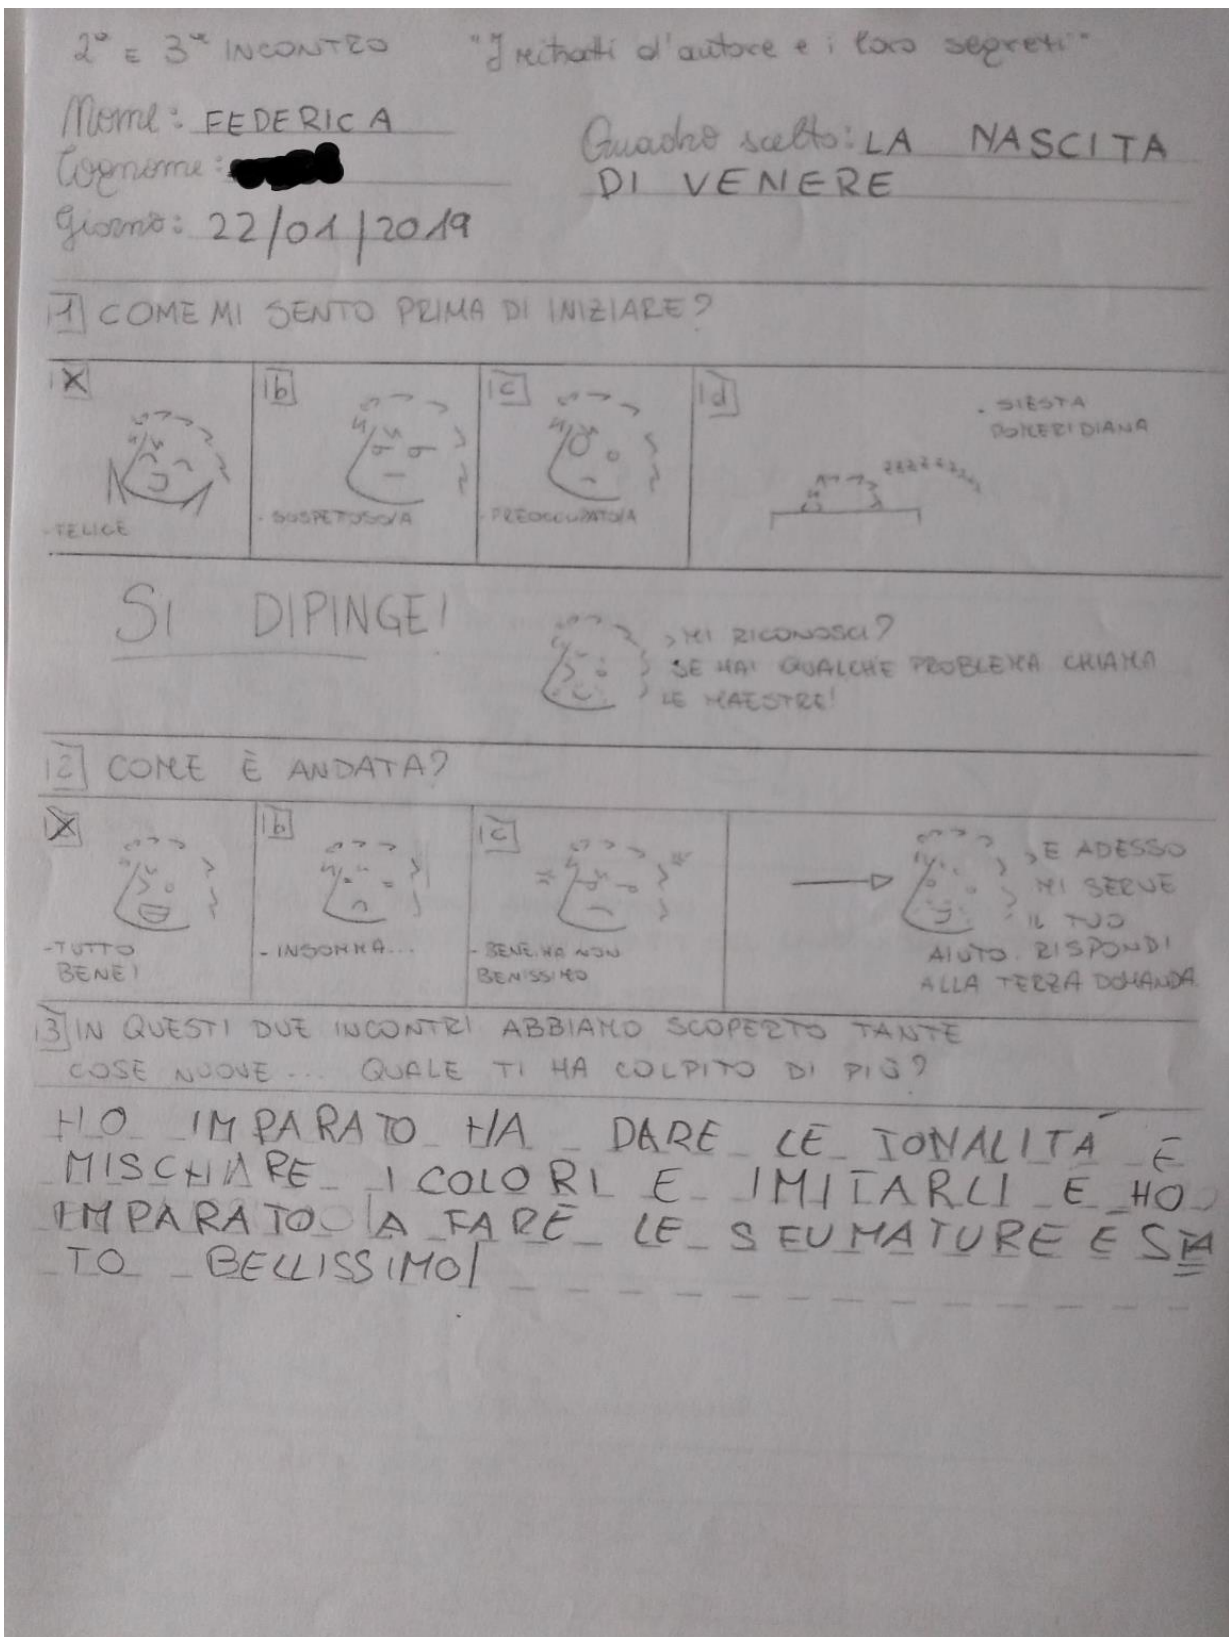 2° E 3° INCONTRO "I ritratti d'autore e i loro segreti"
Nome: FEDERICA
Cognome:
Quadro scelto: LA NASCITA
DI VENERE
Giorno: 22/01/2019
1 COME MI SENTO PRIMA DI INIZIARE?
- FELICE
b
- SOSPETTOSO/A
c
- PREOCCUPATO/A
d
- SIESTA
POMERIDIANA
ZZZZZZZZZ
SI DIPINGE!
MI RICONOSCI?
SE HAI QUALCHE PROBLEMA CHIAMA
LE MAESTRE!
2 COME È ANDATA?
- TUTTO
BENE!
b
- INSOMMA...
c
- BENE, MA NON
BENISSIMO
E ADESSO
MI SERVE
IL TUO
AIUTO. RISPONDI
ALLA TERZA DOMANDA.
3 IN QUESTI DUE INCONTRI ABBIAMO SCOPERTO TANTE
COSE NUOVE... QUALE TI HA COLPITO DI PIÙ?
HO IMPARATO HA DARE LE TONALITÁ E
MISCHIARE I COLORI E IMITARLI E HO
IMPARATO A FARE LE SFUMATURE E STA
TO BELLISSIMO!